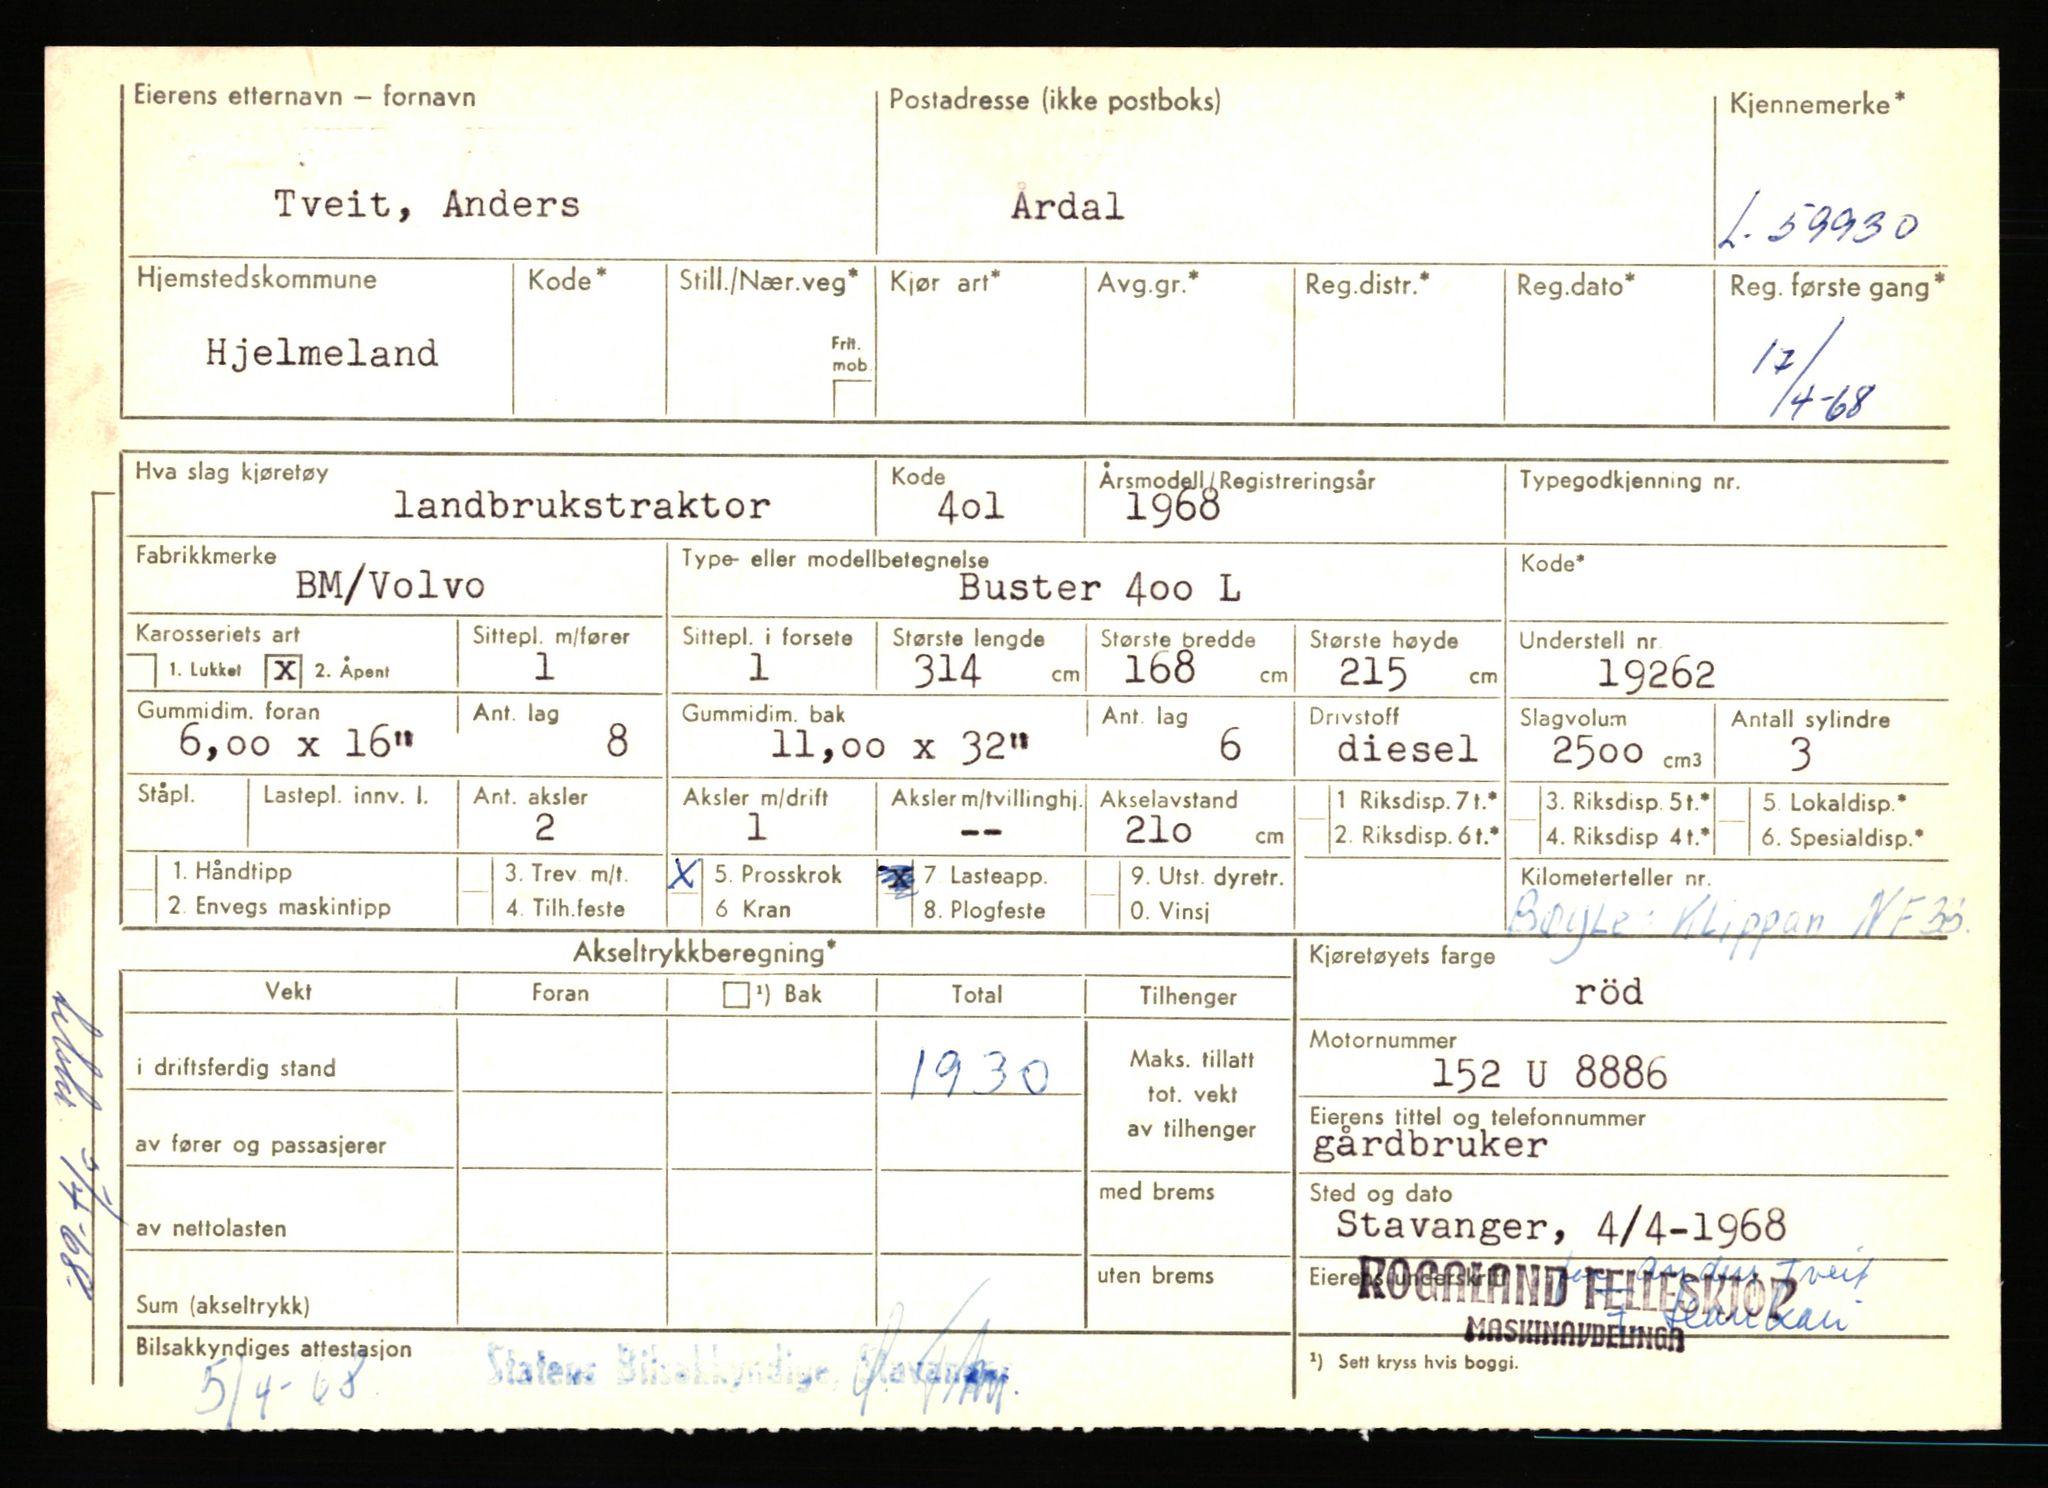 Eierens etternavn – fornavn
Postadresse (ikke postboks)
Kjennemerke*
Tveit, Anders
Årdal
L. 59930
Hjemstedskommune
Kode*
Still./Nær.veg*
Kjør art*
Avg.gr.*
Reg.distr.*
Reg.dato*
Reg. første gang*
Hjelmeland
Frit. mob
17/4-68
Hva slag kjøretøy
Kode
Årsmodell/Registreringsår
Typegodkjenning nr.
landbrukstraktor
4o1
1968
Fabrikkmerke
Type- eller modellbetegnelse
Kode*
BM/Volvo
Buster 4oo L
Karosseriets art
Sittepl. m/fører
Sittepl. i forsete
Største lengde
Største bredde
Største høyde
Understell nr.
1. Lukket
X 2. Åpent
1
1
314 cm
168 cm
215 cm
19262
Gummidim. foran
Ant. lag
Gummidim. bak
Ant. lag
Drivstoff
Slagvolum
Antall sylindre
6,oo x 16"
8
11,oo x 32"
6
diesel
25oo cm3
3
Ståpl.
Lastepl. innv. l.
Ant. aksler
Aksler m/drift
Aksler m/tvillinghj.
Akselavstand
1 Riksdisp. 7 t.*
3. Riksdisp. 5 t.*
5. Lokaldisp.*
2
1
--
21o cm
2. Riksdisp. 6 t.*
4. Riksdisp 4 t.*
6. Spesialdisp.*
1. Håndtipp
3. Trev. m/t.
X 5. Prosskrok
x 7. Lasteapp.
9. Utst. dyretr.
Kilometerteller nr.
2. Envegs maskintipp
4. Tilh.feste
6 Kran
8. Plogfeste
0. Vinsj
Bøyle: Klippan NF
Akseltrykkberegning*
Kjøretøyets farge
röd
Vekt
Foran
¹) Bak
Total
Tilhenger
i driftsferdig stand
1930
Maks. tillatt
tot. vekt
av tilhenger
Motornummer
152 U 8886
Eierens tittel og telefonnummer
gårdbruker
av fører og passasjerer
med brems
Sted og dato
Stavanger, 4/4-1968
av nettolasten
uten brems
Eierens underskrift
for Anders Tveit
ROGALAND FELLESKJØP
MASKINAVDELINGA
Sum (akseltrykk)
Bilsakkyndiges attestasjon
5/4-68
Statens Bilsakkyndige, Stavanger
¹) Sett kryss hvis boggi.
5/4-68.